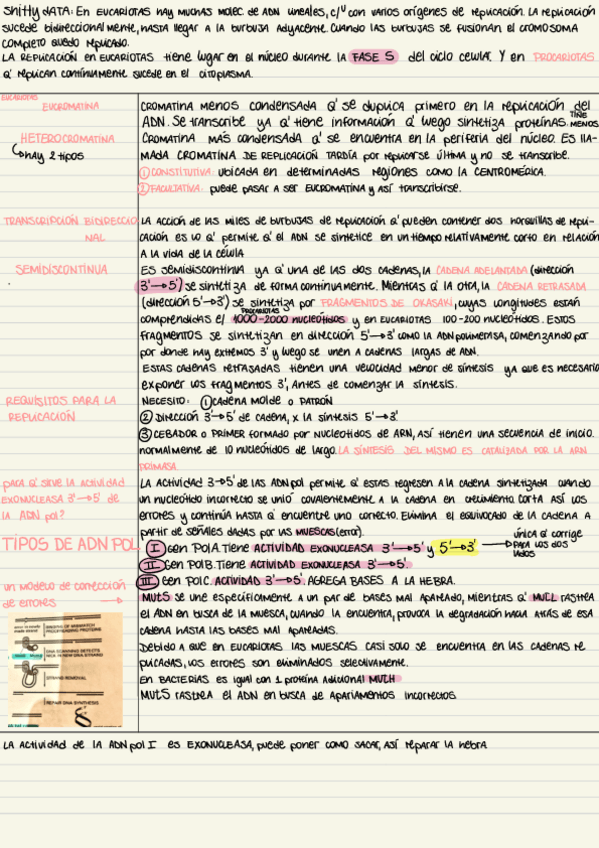 Shitty DATA: En EUCARIOTAS hay muchas molec. de ADN lineales, c/u con varios orígenes de replicación. La replicación
sucede bidireccionalmente, hasta llegar a la burbuja adyacente. Cuando las burbujas se fusionan el cromosoma
completo quedo replicado.
La replicación en eucariotas tiene lugar en el núcleo durante la FASE S del ciclo celular. Y en PROCARIOTAS
q' replican continuamente sucede en el citoplasma.
EUCARIOTAS
EUCROMATINA
CROMATINA menos condensada q' se duplica primero en la replicación del
ADN. Se transcribe ya q' tiene información q' luego sintetiza proteínas. TIÑE MENOS
HETEROCROMATINA
hay 2 tipos
Cromatina más condensada q' se encuentra en la periferia del núcleo. Es lla-
mada CROMATINA DE REPLICACIÓN TARDÍA por replicarse última y no se transcribe.
① CONSTITUTIVA: ubicada en determinadas regiones como la CENTROMÉRICA.
② FACULTATIVA: puede pasar a ser EUCROMATINA y así transcribirse.
TRANSCRIPCIÓN BIDIRECCIO
NAL
La acción de las miles de burbujas de replicación q' pueden contener dos horquillas de repli-
cación es lo q' permite q' el ADN se sintetice en un tiempo relativamente corto en relación
a la vida de la célula
SEMIDISCONTINUA
Es semidiscontinua ya q' una de las dos cadenas, la CADENA ADELANTADA (dirección
3'→5') se sintetiza de forma continuamente. Mientras q' la otra, la CADENA RETRASADA
(dirección 5'→3') se sintetiza por FRAGMENTOS DE OKASAKI, cuyas longitudes están
PROCARIOTAS
comprendidas e/ 1000-2000 nucleótidos y en eucariotas 100-200 nucleótidos. Estos
fragmentos se sintetizan en dirección 5'→3' como la ADN polimerasa, comenzando por
por donde hay extremos 3' y luego se unen a cadenas largas de ADN.
Estas cadenas retrasadas tienen una velocidad menor de síntesis ya que es necesario
exponer los fragmentos 3', antes de comenzar la síntesis.
REQUISITOS PARA LA
REPLICACIÓN
Necesito: ① Cadena molde o PATRÓN
② Dirección 3'→5' de cadena, x la síntesis 5'→3'
③ CEBADOR o PRIMER formado por nucleotidos de ARN, así tienen una secuencia de inicio.
normalmente de 10 nucleótidos de largo. LA SÍNTESIS DEL MISMO ES CATALIZADA POR LA ARN
PRIMASA
para q' sirve la actividad
EXONUCLEASA 3'→5' de
la ADN pol?
La actividad 3→5' de las ADN pol permite q' estas regresen a la cadena sintetizada cuando
un nucleótido incorrecto se unió covalentemente a la cadena en crecimiento corta así los
errores y continúa hasta q' encuentre uno correcto. Elimina el equivocado de la cadena a
partir de señales dadas por las MUESCAS (error).
TIPOS DE ADN POL
I Gen PolA. Tiene ACTIVIDAD EXONUCLEASA 3'→5' y 5'→3'
única q' corrige
para los dos
lados
II Gen PolB. Tiene ACTIVIDAD EXONUCLEASA 3'→5'.
III Gen PolC. ACTIVIDAD 3'→5'. AGREGA BASES A LA HEBRA.
un modelo de corrección
de errores
MutS se une específicamente a un par de bases mal apareado, mientras q' MUCL rastrea
el ADN en busca de la muesca, cuando la encuentra, provoca la degradación hacia atrás de esa
cadena hasta las bases mal apareadas.
Debido a que en eucariotas las muescas casi solo se encuentra en las cadenas re
plicadas, los errores son eliminados selectivamente.
En BACTERIAS es igual con 1 proteína adicional MUCH
MutS rastrea el ADN en busca de apariamientos incorrectos.
BINDING OF MISMATCH
PROOFREADING PROTEINS
DNA SCANNING DETECTS
NICK IN NEW DNA STRAND
STRAND REMOVAL
REPAIR DNA SYNTHESIS
La actividad de la ADN pol I es EXONUCLEASA, puede poner como sacar, así reparar la hebra